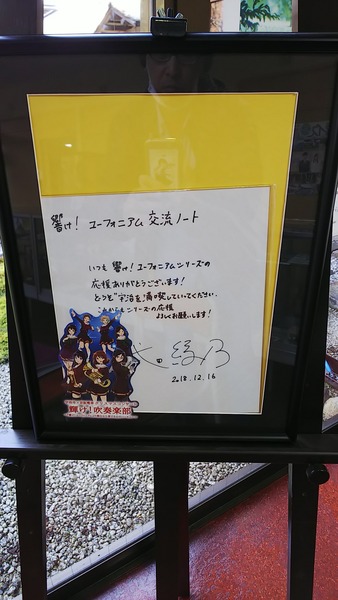 響け！ユーフォニアム 交流ノート
いつも 響け！ユーフォニアムシリーズの
応援ありがとうございます！
どうぞ宇治を満喫していってください
これからもシリーズの応援
よろしくお願いします！
武田 綾乃
2018.12.16
輝け！吹奏楽部